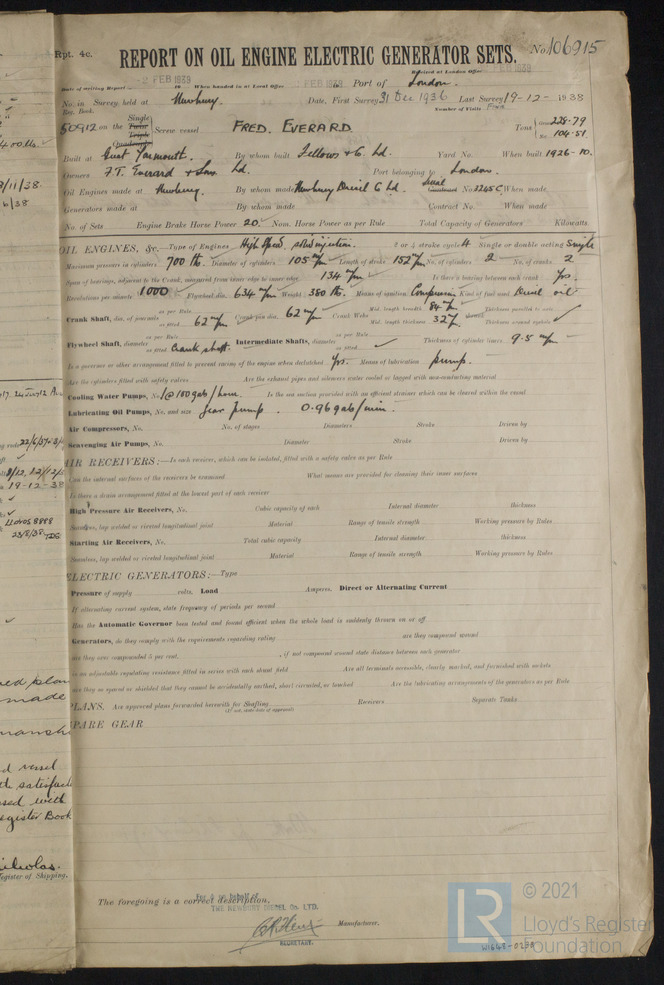 Rpt. 4c.
REPORT ON OIL ENGINE ELECTRIC GENERATOR SETS.
No. 106915
Received at London Office
2 FEB 1939
Date of writing Report 19 When handed in at Local Office FEB 1939 Port of London.
No. in Survey held at Newbury. Date, First Survey 31 Dec 1936 Last Survey 19-12-1938
Reg. Book. Number of Visits Five
50912 on the Single Twin Triple Quadruple Screw vessel FRED. EVERARD Tons Gross 228.79 Net 104.51
Built at Great Yarmouth. By whom built Fellows & Co Ld. Yard No. When built 1926-10.
Owners F.T. Everard & Sons Ld. Port belonging to London.
Oil Engines made at Newbury. By whom made Newbury Diesel C Ld. Contract No. 3245C When made
Generators made at By whom made Contract No. When made
No. of Sets Engine Brake Horse Power 20. Nom. Horse Power as per Rule Total Capacity of Generators Kilowatts.
OIL ENGINES, &c.—Type of Engines High Speed, solid injection. 2 or 4 stroke cycle 4 Single or double acting Single
Maximum pressure in cylinders 700 lb. Diameter of cylinders 105 m/m Length of stroke 152 m/m No. of cylinders 2 No. of cranks 2
Span of bearings, adjacent to the Crank, measured from inner edge to inner edge 134 m/m Is there a bearing between each crank Yes.
Revolutions per minute 1000 Flywheel dia. 634 m/m Weight 380 lb. Means of ignition Compression Kind of fuel used Diesel oil
Crank Shaft, dia. of journals as per Rule as fitted 62 m/m Crank pin dia. 62 m/m Crank Webs Mid. length breadth 84 m/m Mid. length thickness 32 m/m shrunk Thickness parallel to axis Thickness around eyehole
Flywheel Shaft, diameter as per Rule as fitted Crank shaft. Intermediate Shafts, diameter as per Rule as fitted Thickness of cylinder liners 9.5 m/m
Is a governor or other arrangement fitted to prevent racing of the engine when declutched Yes. Means of lubrication pump.
Are the cylinders fitted with safety valves Are the exhaust pipes and silencers water cooled or lagged with non-conducting material
Cooling Water Pumps, No. 1 @ 180 gals/hour. Is the sea suction provided with an efficient strainer which can be cleared within the vessel
Lubricating Oil Pumps, No. and size gear pump. 0.96 gals/min.
Air Compressors, No. No. of stages Diameters Stroke Driven by
Scavenging Air Pumps, No. Diameter Stroke Driven by
AIR RECEIVERS:—Is each receiver, which can be isolated, fitted with a safety valve as per Rule
Can the internal surfaces of the receivers be examined What means are provided for cleaning their inner surfaces
Is there a drain arrangement fitted at the lowest part of each receiver
High Pressure Air Receivers, No. Cubic capacity of each Internal diameter thickness
Seamless, lap welded or riveted longitudinal joint Material Range of tensile strength Working pressure by Rules
Starting Air Receivers, No. Total cubic capacity Internal diameter thickness
Seamless, lap welded or riveted longitudinal joint Material Range of tensile strength Working pressure by Rules
ELECTRIC GENERATORS:—Type
Pressure of supply volts. Load Amperes. Direct or Alternating Current
If alternating current system, state frequency of periods per second
Has the Automatic Governor been tested and found efficient when the whole load is suddenly thrown on or off
Generators, do they comply with the requirements regarding rating are they compound wound
are they over compounded 5 per cent. , if not compound wound state distance between each generator
is an adjustable regulating resistance fitted in series with each shunt field Are all terminals accessible, clearly marked, and furnished with sockets
are they so spaced or shielded that they cannot be accidentally earthed, short circuited, or touched Are the lubricating arrangements of the generators as per Rule
PLANS. Are approved plans forwarded herewith for Shafting Receivers Separate Tanks
(If not, state date of approval)
SPARE GEAR
The foregoing is a correct description,
For & on behalf of
THE NEWBURY DIESEL Co. LTD.
Manufacturer.
SECRETARY.
W1648-0238
LR
© 2021
Lloyd's Register
Foundation
3/11/38.
19-12-38
Lloyds 8898
23/8/38
made
d vessel
satisfact
used with
Register Book
Register of Shipping.